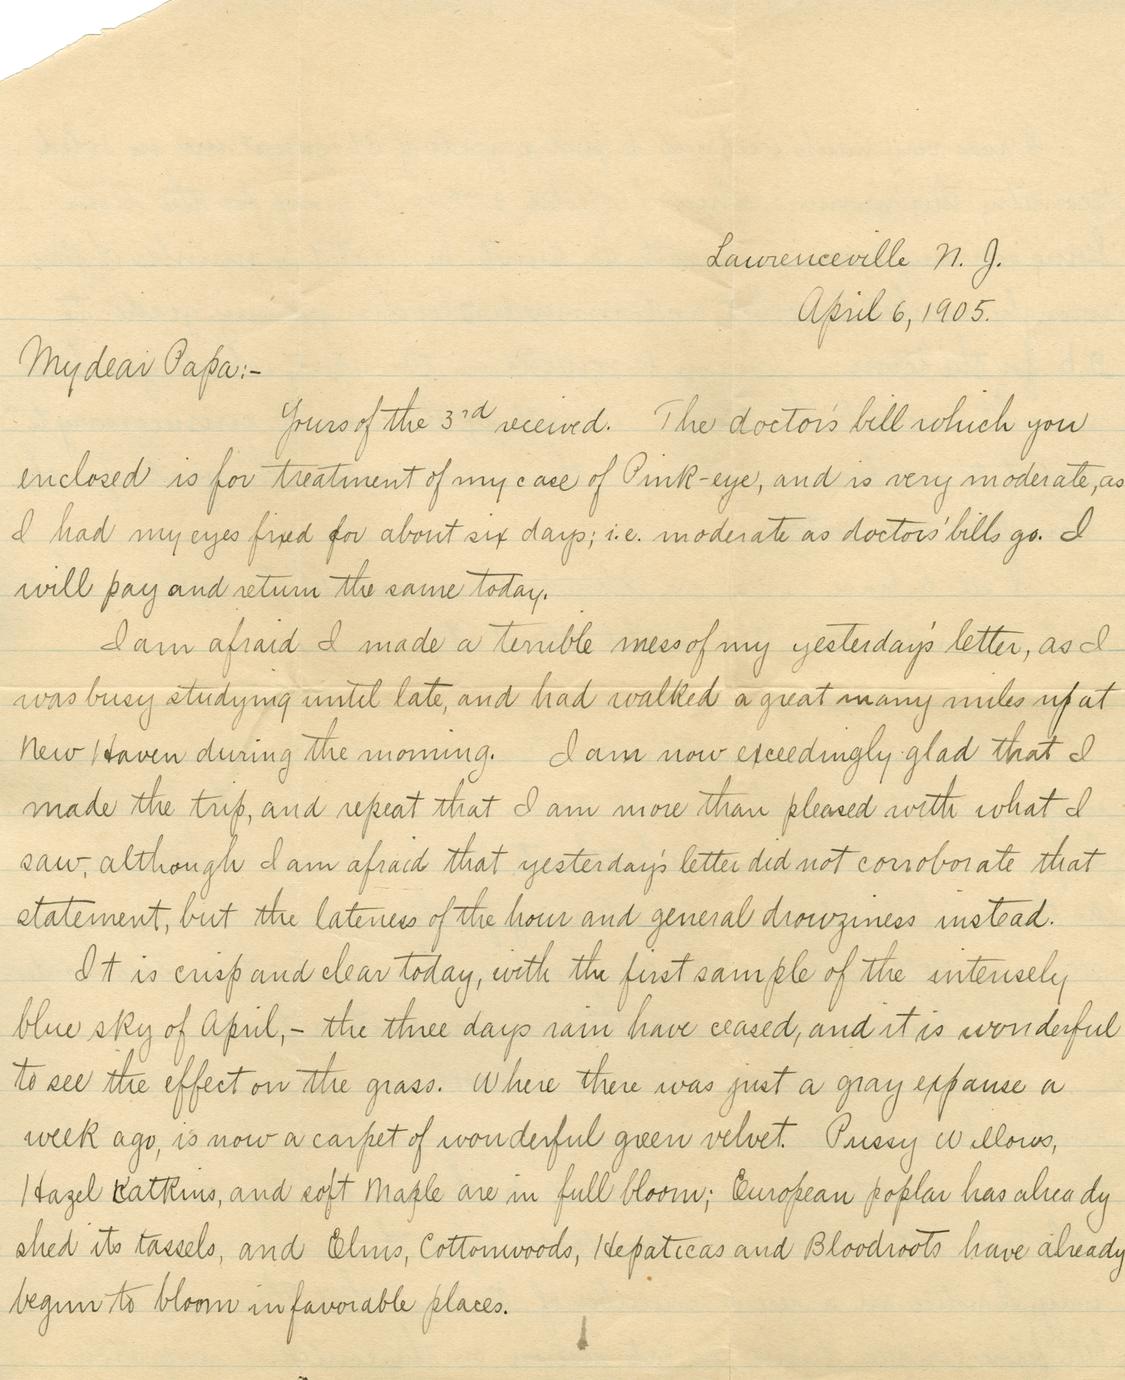 Lawrenceville N. J.
April 6, 1905.
My dear Papa:-
Yours of the 3rd received. The doctor's bill which you
enclosed is for treatment of my case of Pink-eye, and is very moderate, as
I had my eyes fixed for about six days; i.e. moderate as doctors' bills go. I
will pay and return the same today.
I am afraid I made a terrible mess of my yesterday's letter, as I
was busy studying until late, and had walked a great many miles up at
New Haven during the morning. I am now exceedingly glad that I
made the trip, and repeat that I am more than pleased with what I
saw, although I am afraid that yesterday's letter did not corroborate that
statement, but the lateness of the hour and general drowziness instead.
It is crisp and clear today, with the first sample of the intensely
blue sky of April,- the three days rain have ceased, and it is wonderful
to see the effect on the grass. Where there was just a gray expanse a
week ago, is now a carpet of wonderful green velvet. Pussy Willows,
Hazel Katkins, and soft Maple are in full bloom; European poplar has already
shed its tassels, and Elms, Cottonwoods, Hepaticas and Bloodroots have already
begun to bloom in favorable places.